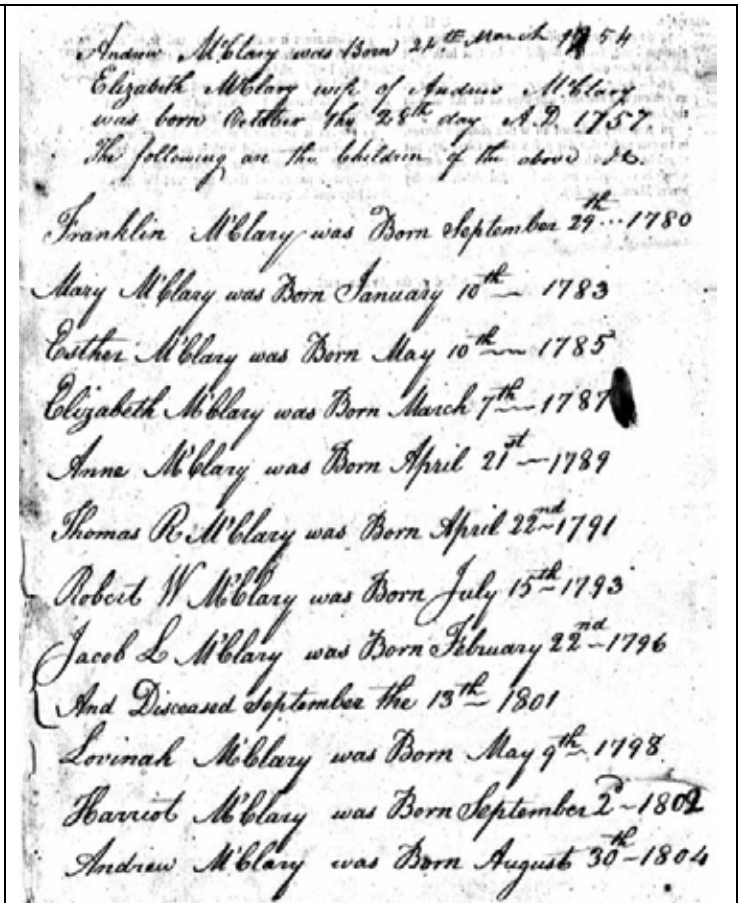 Andrew McClary was Born 24th March 1754
Elizabeth McClary wife of Andrew McClary
was born October the 28th day A.D. 1757.
The following are the Children of the above &c.
Franklin McClary was Born September 29th ... 1780
Mary McClary was Born January 10th — 1783
Esther McClary was Born May 10th — 1785
Elizabeth McClary was Born March 7th — 1787
Anne McClary was Born April 21st — 1789
Thomas R McClary was Born April 22nd — 1791
Robert W McClary was Born July 15th — 1793
Jacob L McClary was Born February 22nd — 1796
And Disceased September the 13th — 1801
Lovinah McClary was Born May 9th — 1798
Harriot McClary was Born September 2d — 1802
Andrew McClary was Born August 30th — 1804